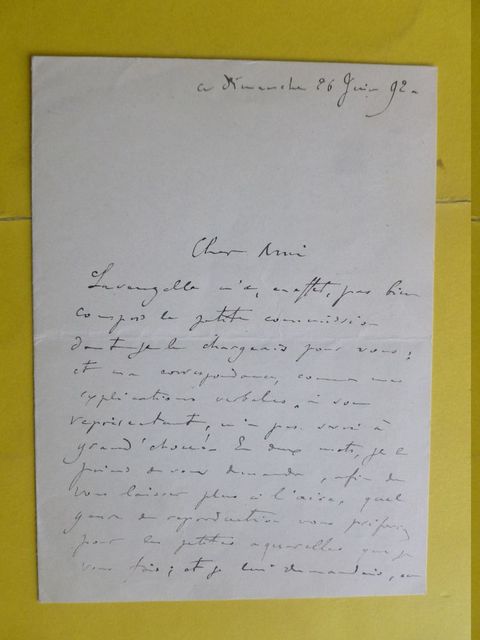 ce Dimanche 26 Juin 92.
Cher Ami
Lavauzelle n'a, en effet, pas bien
compris la petite commission
dont je le chargeais pour vous;
et ma correspondance, comme mes
explications verbales, à son
représentant, n'a pas servi à
grand'chose. En deux mots, je le
priais de vous demander, afin de
vous laisser plus à l'aise, quel
genre de reproduction vous préférez
pour les petites aquarelles que je
vous fais; et je lui demandais, en